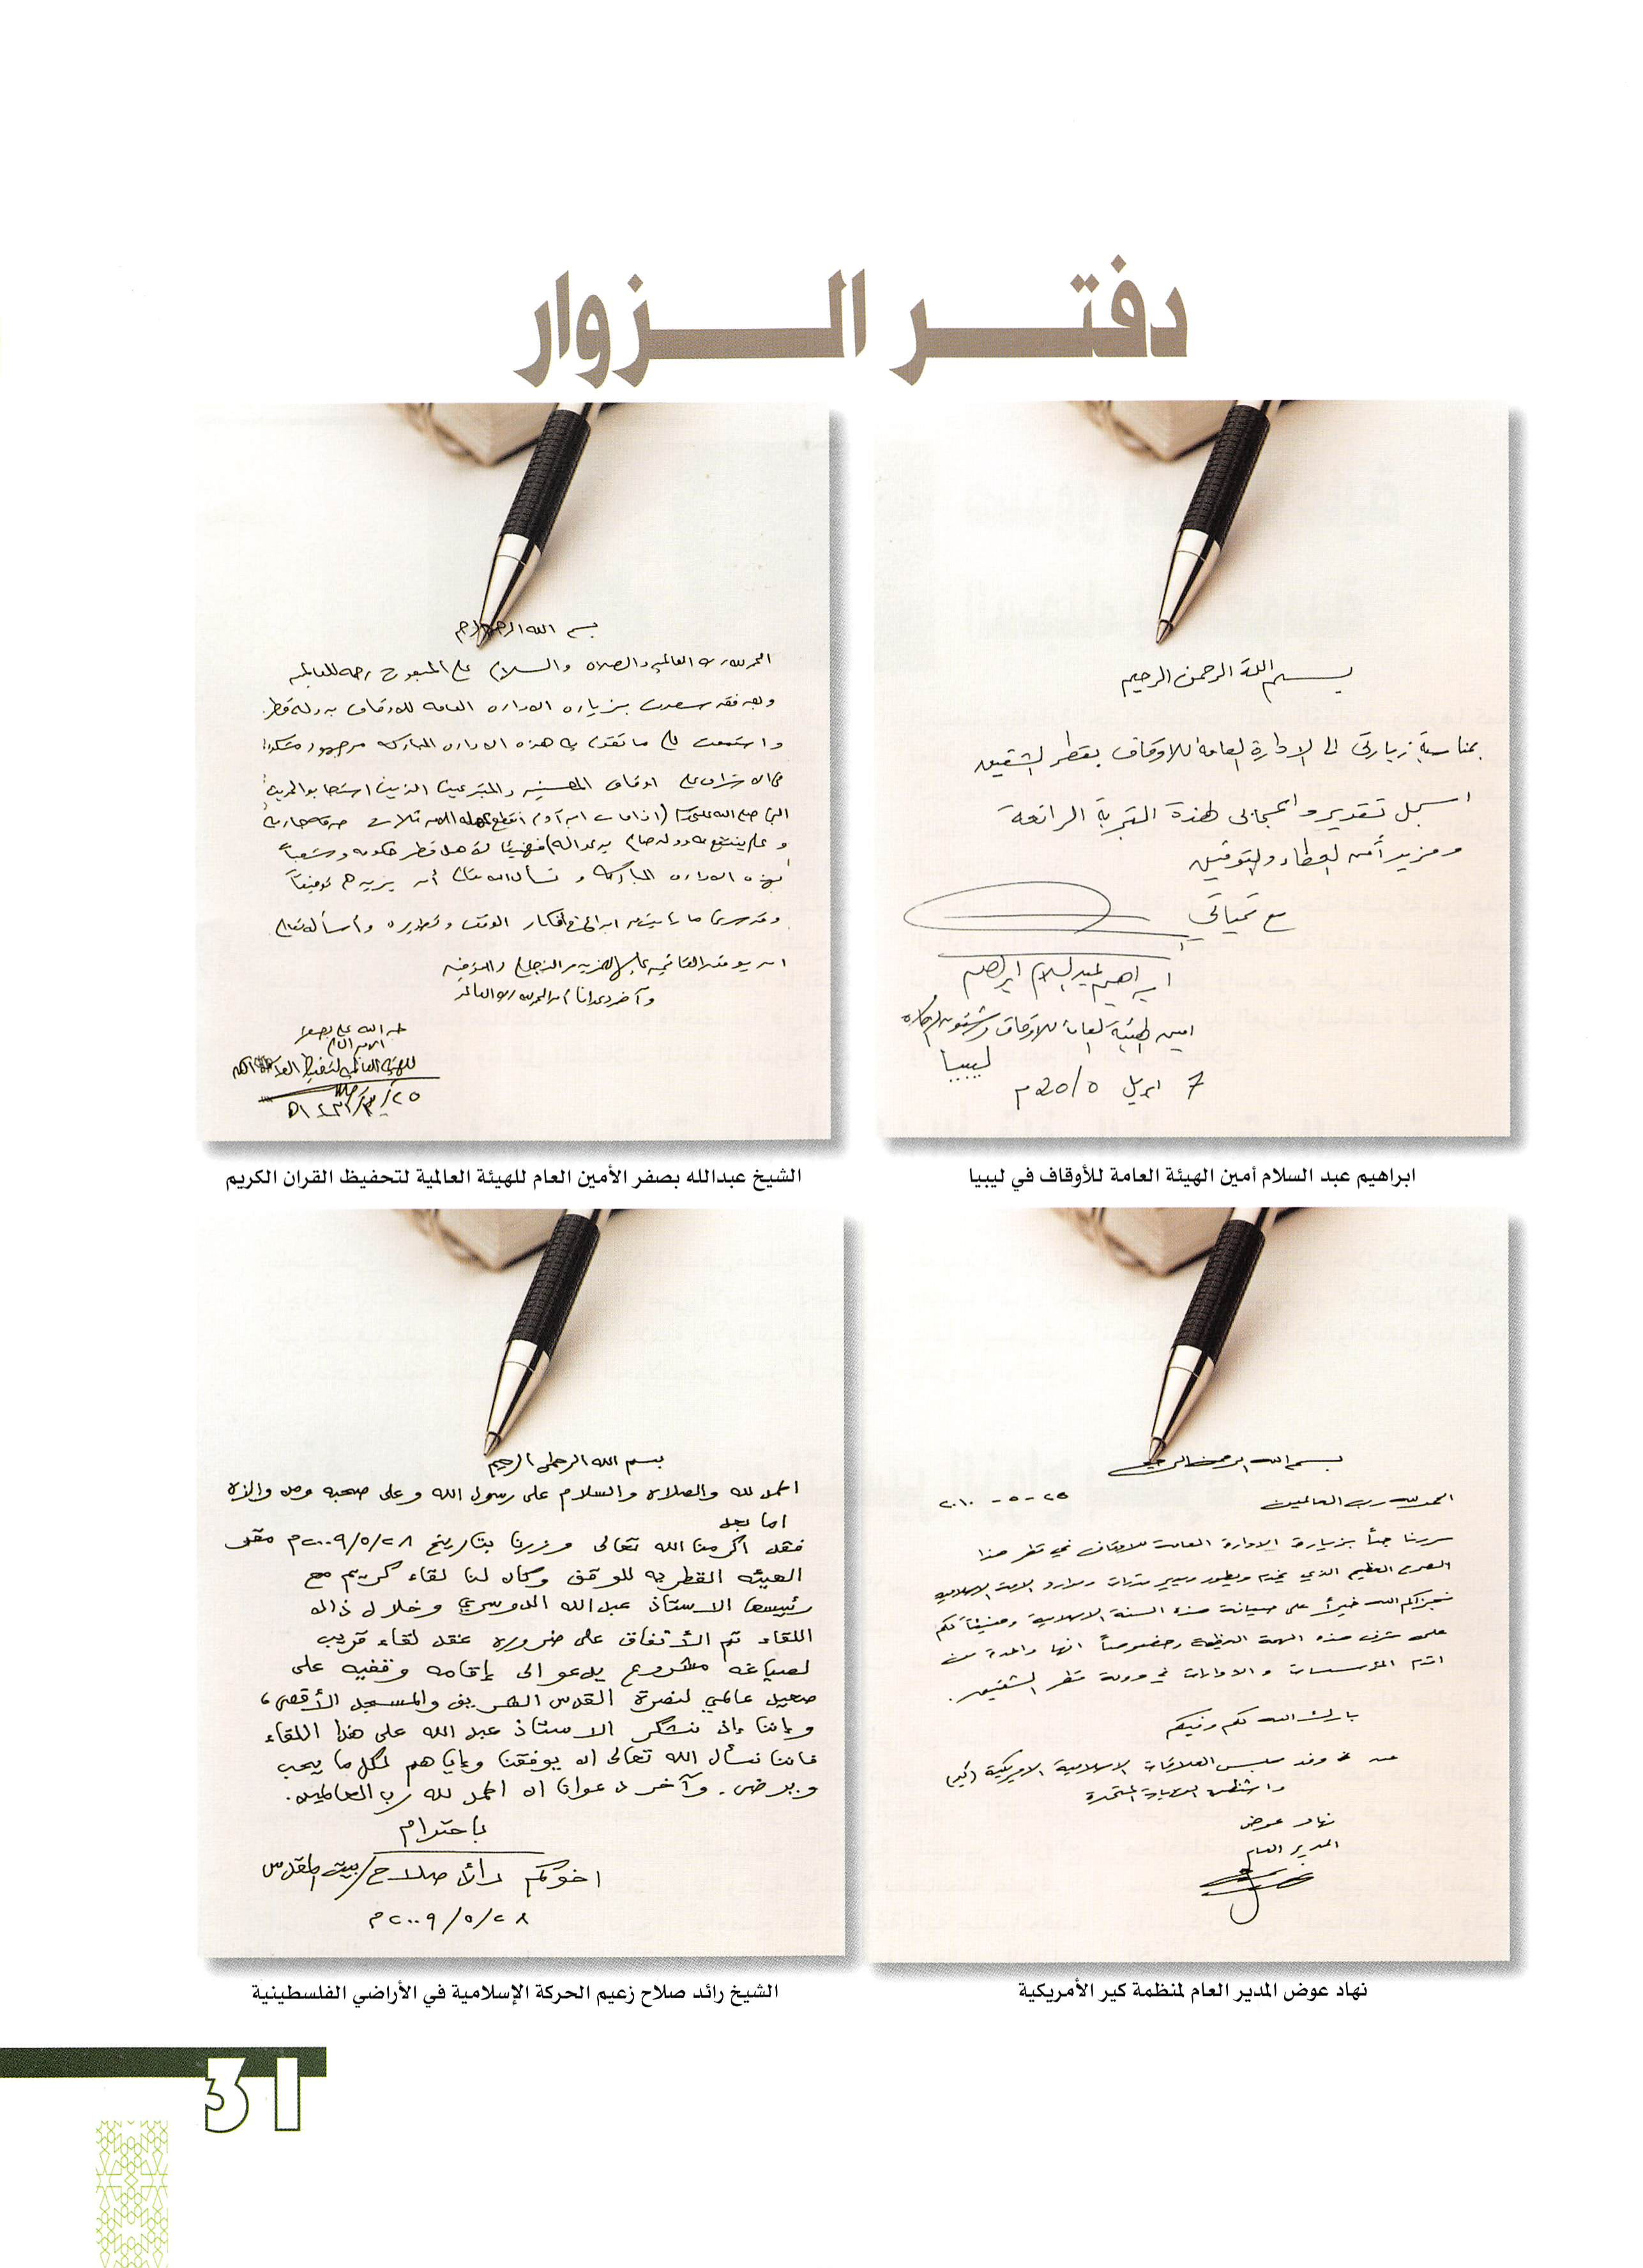 دفتر الزوار
بسم الله الرحمن الرحيم
بمناسبة زيارتي الى الإدارة العامة للاوقاف بقطر الشقيق
اسجل تقديري واعجابي لهذة التجربة الرائعة
ومزيد أمن العطاء والتوفيق
مع تحياتي
ابراهيم عبد السلام ابراهيم
امين الهيئة العامة للاوقاف وشئون الزكاة
ليبيا
7 ابريل 2010م
ابراهيم عبد السلام أمين الهيئة العامة للأوقاف في ليبيا
بسم الله الرحمن الرحيم
الحمد لله رب العالمين والصلاه والسلام على المبعوث رحمه للعالمين
وبعد فقد سعدت بزياره الاداره العامه للاوقاف بدولة قطر
واستمعت الى ما تقوم به هذه الاداره المباركه من جهود مشكوره
في الاشراف على اوقاف المحسنين والمتبرعين الذين استجابوا لحديث
النبي صلى الله عليه وسلم (اذا مات ابن آدم انقطع عمله الا من ثلاث صدقه جاريه
و علم ينتفع به وولد صالح يدعو له) فهنيئا لأهل قطر حكومه وشعباً
بهذه الاداره المباركه و نسأل الله تعالى أن يزيدهم توفيقاً
وقد سرني ما رأيت من ابداع في أفكار الوقف وتطويره وأسأله تعالى
ان يوفق القائمين عليها لمزيد من النجاح والتوفيق
وآخر دعوانا أن الحمد لله رب العالمين
عبد الله علي بصفر
الامين العام
للهيئة العالمية لتحفيظ القرآن الكريم
الشيخ عبدالله بصفر الأمين العام للهيئة العالمية لتحفيظ القران الكريم
بسم الله الرحمن الرحيم
الحمد لله رب العالمين ٢٥-٥-٢٠١٠
سررنا جداً بزيارة الادارة العامة للاوقاف في قطر هذا
الصرح العظيم الذي يخدم ويطور ويدير مقدرات وموارد الامة الاسلامية
فجزاكم الله خيراً على صيانة هذه السنة الاسلامية وهنيئاً لكم
على شرف هذه المهمة العظيمة وخصوصاً انها واحدة من
اقدم المؤسسات والادارات في دولة قطر الشقيق.
بارك الله لكم وفيكم
عن وفد مجلس العلاقات الاسلامية الامريكية (كير)
واشنطن الولايات المتحدة
نهاد عوض
المدير العام
نهاد عوض المدير العام لمنظمة كير الأمريكية
بسم الله الرحمن الرحيم
الحمد لله والصلاة والسلام على رسول الله وعلى صحبه ومن والاه
اما بعد
فقد أكرمنا الله تعالى وزرنا بتاريخ ٢٠٠٩/٥/٢٨م مقر
الهيئه القطريه للوقف وكان لنا لقاء كريم مع
رئيسها الاستاذ عبد الله الدوسري وخلال ذلك
اللقاء تم الأتفاق على ضرورة عقد لقاء قريب
لصياغه مشروع يدعو الى إقامه وقفيه على
صعيد عالمي لنصرة القدس الشريف والمسجد الأقصى،
وإننا إذ نشكر الاستاذ عبد الله على هذا اللقاء
فاننا نسأل الله تعالى ان يوفقنا وإياهم لكل ما يحب
ويرضى. وآخر دعوانا ان الحمد لله رب العالمين.
باحترام
اخوكم رائد صلاح/بيت المقدس
٢٠٠٩/٥/٢٨م
الشيخ رائد صلاح زعيم الحركة الإسلامية في الأراضي الفلسطينية
31